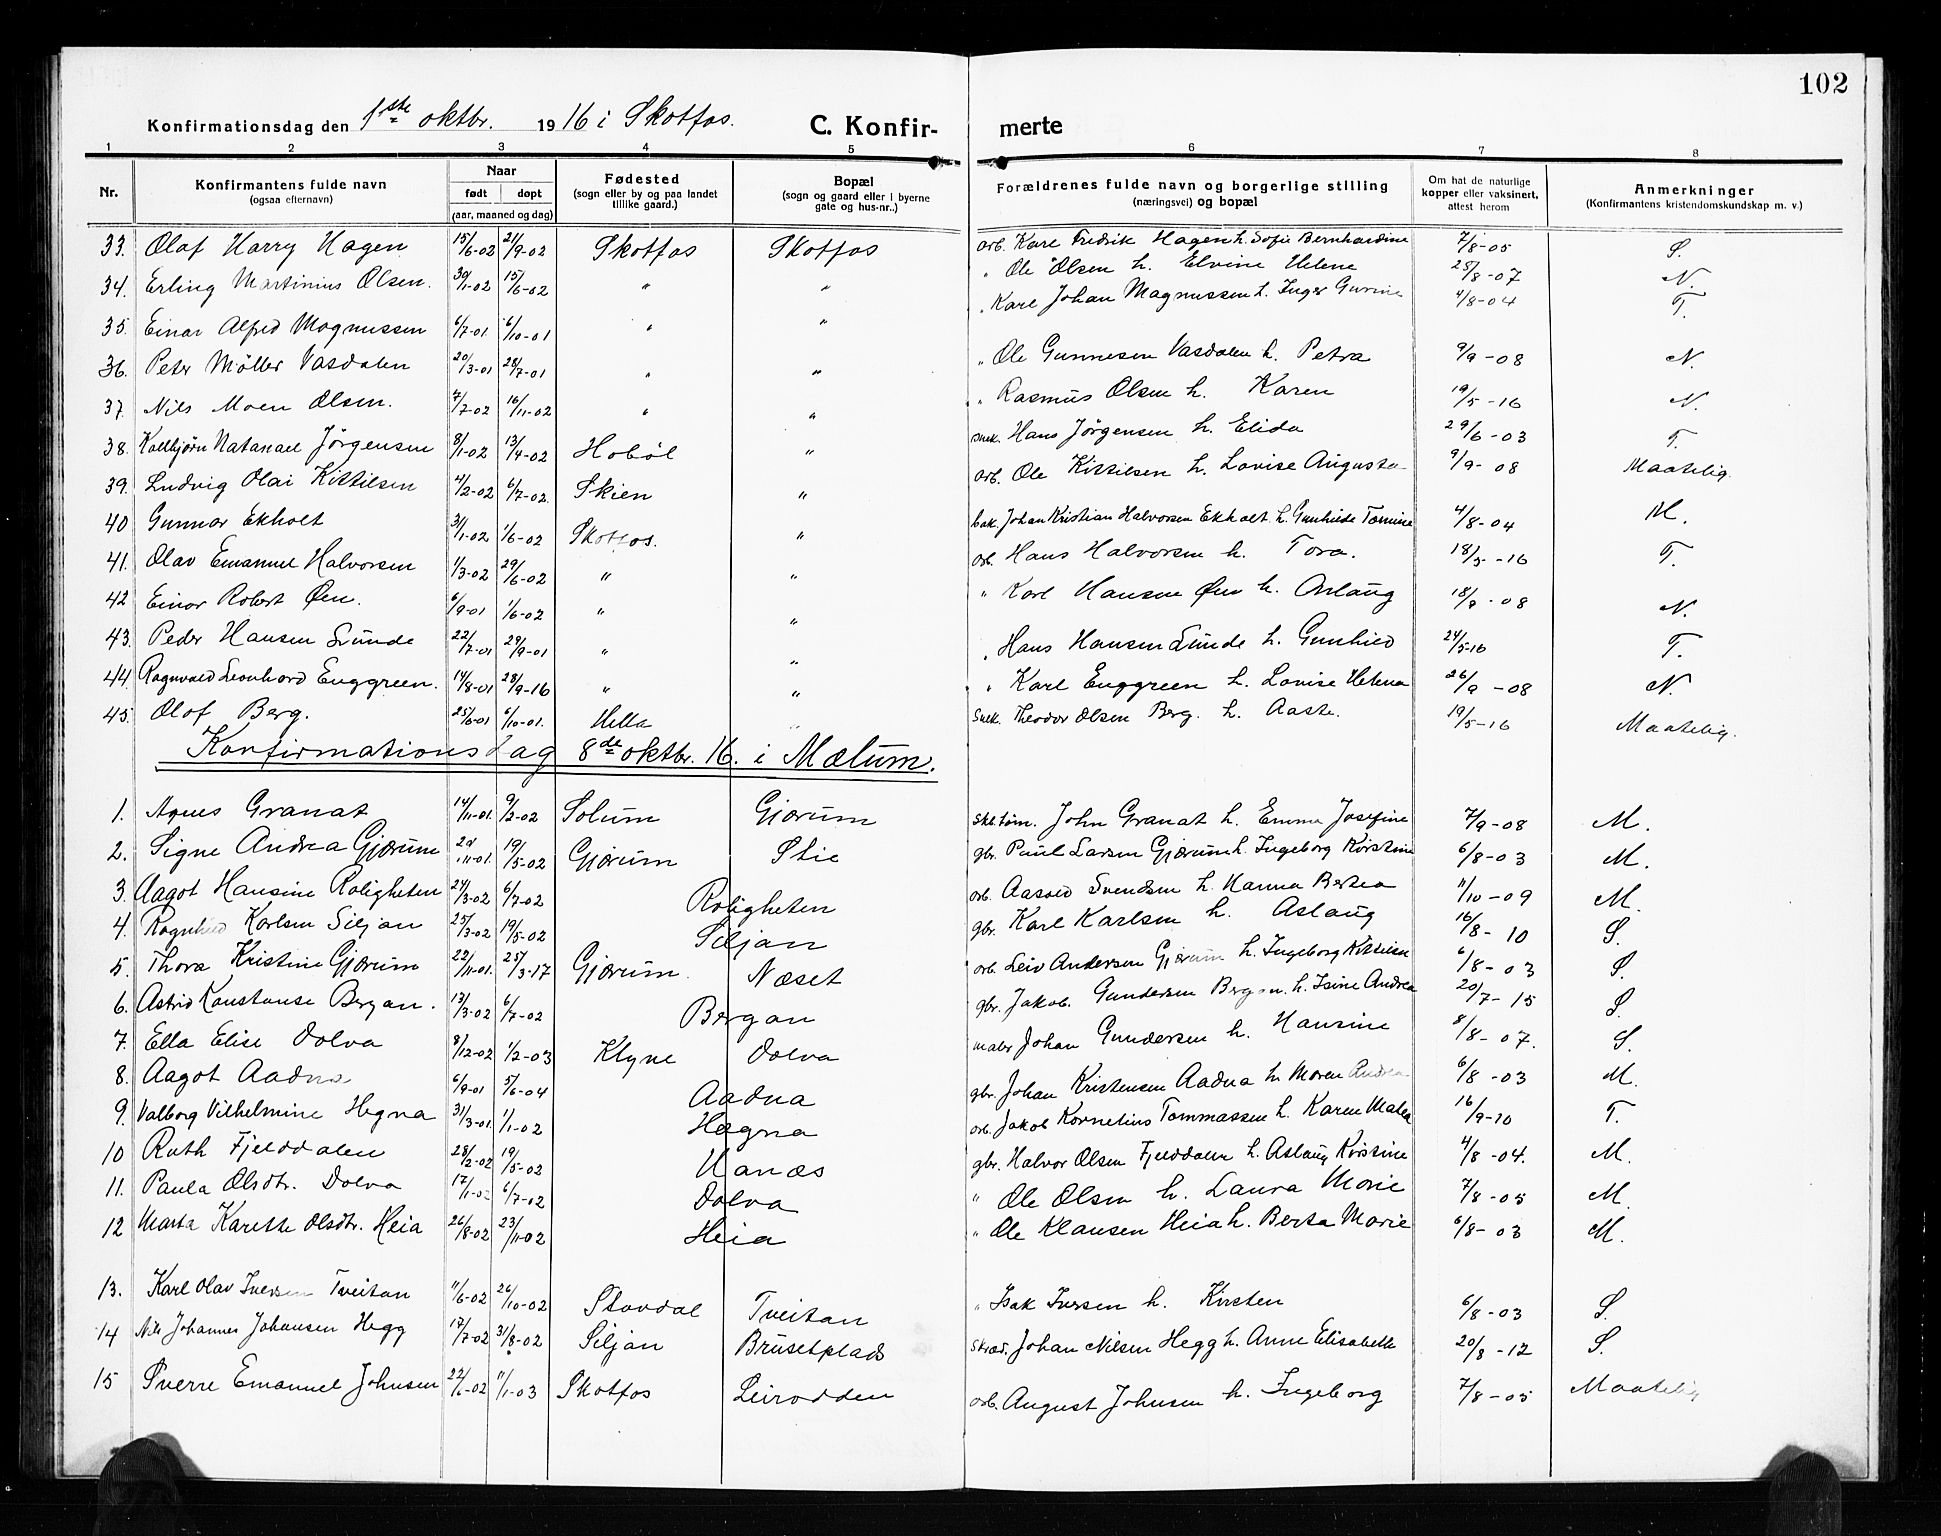 102
Konfirmationsdag den 1ste oktbr. 1916 i Skotfos. C. Konfir- merte
1 2 3 4 5 6 7 8
Nr. Konfirmantens fulde navn (ogsaa efternavn) Naar født døpt (aar, maaned og dag) Fødested (sogn eller by og paa landet tillike gaard.) Bopæl (sogn og gaard eller i byerne gate og hus-nr..) Forældrenes fulde navn og borgerlige stilling (næringsvei) og bopæl Om hat de naturlige kopper eller vaksinert, attest herom Anmerkninger (Konfirmantens kristendomskundskap m. v.)
33. Olaf Harry Hagen 15/6-02 21/9-02 Skotfos Skotfos arb. Karl Fredrik Hagen h. Sofie Bernhardine 7/8-05 S.
34. Erling Martinius Olsen. 30/1-02 15/6-02 " " " Ole Olsen h. Elvine Helene 25/8-07 N.
35. Einar Alfred Magnussen 6/7-01 6/10-01 " " " Karl Johan Magnussen h. Inger Gurine 4/8-04 T.
36. Peter Møller Vasdalen 20/3-01 28/7-01 " " " Ole Gunnesen Vasdalen h. Petra 9/9-08 N.
37. Nils Moen Olsen. 7/7-02 16/11-02 " " " Rasmus Olsen h. Karen 19/5-16 N.
38. Kolbjørn Natanael Jörgensen 8/1-02 13/4-02 Hoböl " snek. Hans Jörgensen h. Elida 29/6-03 T.
39. Ludvig Olai Kittilsen 4/2-02 6/7-02. Skien " arb. Ole Kittilsen h. Lovise Augusta 9/9-08 Maatelig.
40 Gunnar Ekholt 31/1-02. 1/6-02 Skotfos. " bak. Johan Kristian Halvorsen Ekholt h. Gunhilde Tomine 4/8-04 M.
41. Olav Emanuel Halvorsen 1/3-02 29/6-02 " " arb. Hans Halvorsen h. Tora. 18/5-16 T.
42 Einar Robert Øen. 6/9-01 1/6-02 " " " Karl Hansen Øen h. Aslaug 18/9-08 N.
43. Peder Hansen Lunde 22/7-01 29/9-01 " " " Hans Hansen Lunde h. Gunhild 24/5-16 T.
44. Ragnvald Leonhard Enggreen. 14/8-01 28/9-16 " " " Karl Enggreen h. Lovise Helena 26/9-08 N.
45. Olaf Berg. 25/6-01 6/10-01. Hella " Snek. Theodor Olsen Berg. h. Aaste. 19/5-16 Maatelig.
Konfirmationsdag 8de oktbr. 16. i Mælum.
1. Agnes Granat 14/11-01. 9/2-02 Solum Gjærum skb.töm. John Granat h. Emma Josefine 7/9-08 M.
2. Signe Andrea Gjærum 11-01. 19/5-02 Gjærum Stie gbr. Paul Larsen Gjærum h. Ingeborg Kirstine 6/8-03 M.
3. Aagot Hansine Roligheten 24/3-02 6/7-02 Roligheten arb. Svendsen h. Hanna Bertea 11/10-09 M.
4. Ragnhild Karlsen Siljan 25/3-02 19/5-02 Siljan gbr. Karl Karlsen h. Aslaug 16/8-10 S.
5. Thora Kristine Gjærum 22/11-01. 25/3-17 Gjærum. Næset arb. Leiv Andersen Gjærum h. Ingeborg Kittilsen 6/8-03 S.
6. Astrid Konstanse Bergan. 13/3-02 6/7-02 Bergan gbr. Jakob. Gundersen Bergan. h. Isine Andrea 20/7-15 S.
7. Ella Elise Dolva 8/12-02 1/2-03 Klyve Dolva maler Johan Gundersen h. Hansine 8/8-07. S.
8. Aagot Aadna 6/9-01 5/6-04 Aadna gbr. Johan Kristensen Aadna h. Maren Andrea 6/8-03 M.
9. Valborg Vilhelmine Hegna 31/3-01. 1/1-02 Hegna arb. Jakob Kornelius Tommassen h. Karen Matea 16/9-10 T.
10 Ruth Fjelddalen 28/2-02 19/5-02 Hanæs gbr. Halvor Olsen Fjelddalen h. Aslaug Kirstine 4/8-04. M.
11. Paula Olsdtr. Dolva 17/1-02 6/7-02 Dolva " Ole Olsen h. Laura Marie 7/8-05 M.
12 Marta Karette Olsdtr. Heia 26/8-02 23/11-02 Heia " Ole Klausen Heia h. Berta Marie 6/8-03 M.
13. Karl Olav Iversen Tveitan 11/6-02 26/10-02 Slavdal Tveitan " Isak Iversen h. Kirsten 6/8-03 S.
14 Nils Johannes Johansen Hegg 17/7-02 31/8-02 Siljan Brusetplads skræd. Johan Nilsen Hegg h. Anne Elisabeth 20/8-12 S.
15 Sverre Emanuel Johnsen 22/6-02 11/1-03 Skotfos Leirodden arb. August Johnsen h. Ingeborg 7/8-05 Maatelig